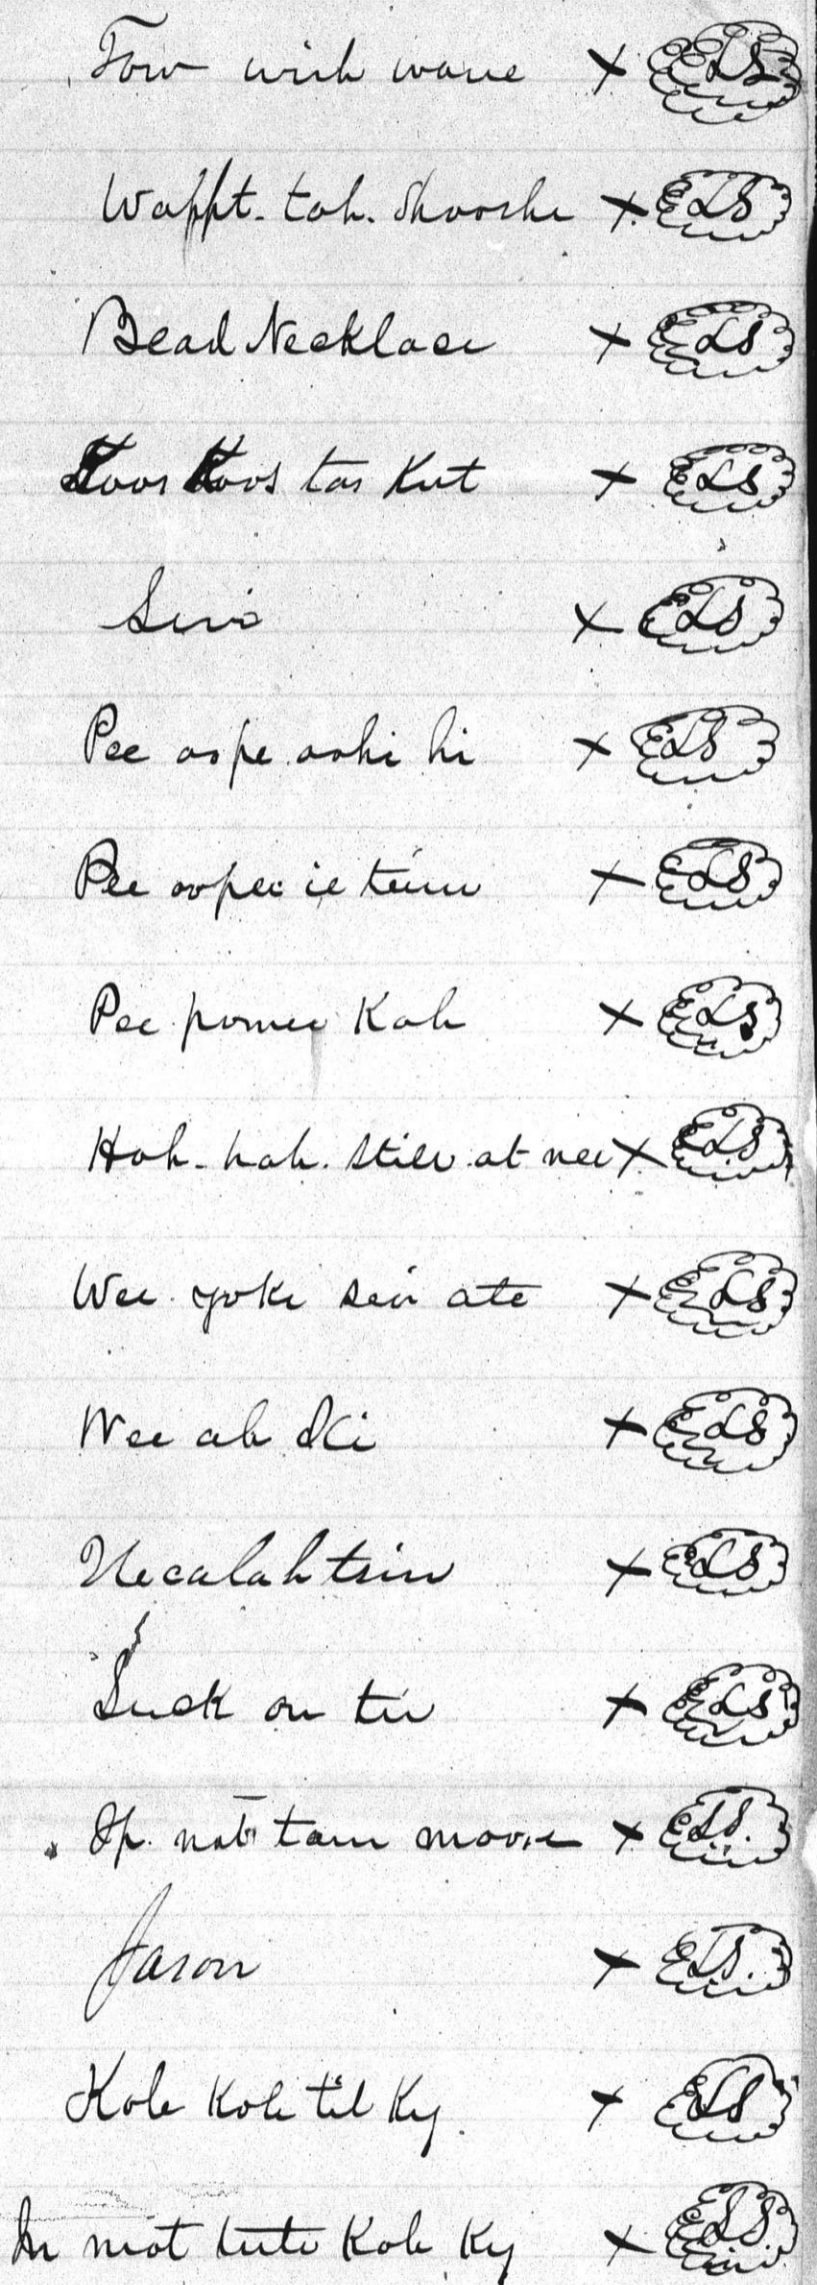 Tow wish wane X LS
Wappt-tah. Shooshe X LS
Bead Necklace X LS
Koos Koos tas Kut X LS
Levi X LS
Pee oo pe. ooki hi X LS
Pee oopee ie teim X LS
Pee pomee Kah X LS
Hah-hah. Still. at nee X LS
Wee. yoke sein ate X LS
Wee ah Ski X LS
Necalahtsin X LS
Suck on tie X LS
Ip. nat tam moose X LS
Jason X LS
Kole Kole til Ky. X LS
In mot tute Kah Ky X LS